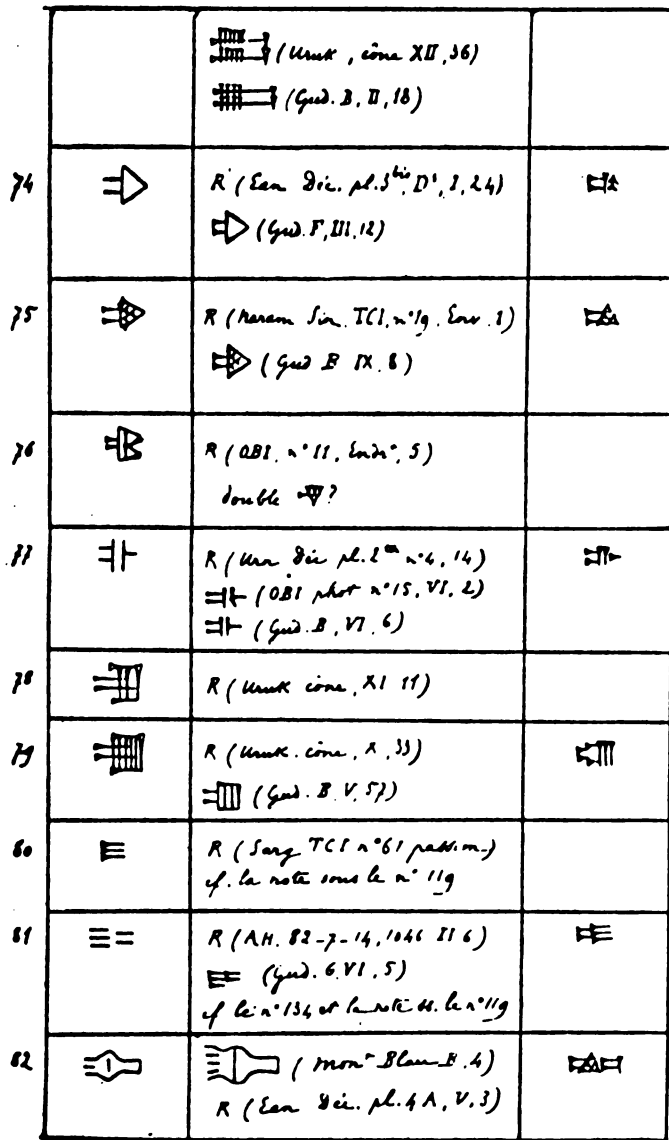 (Uruk, cône XII, 36)
(Gud. B, II, 18)
74 R (Ean Déc. pl. 3 bis, D¹, I, 24)
(Gud. F, III, 12)
75 R (Naram Sin. TCI, n° 19. Env. 1)
(Gud E IX. 8)
76 R (OBI. n° 11, 5)
double ?
77 R (Urn Déc pl. 2 n° 4, 14)
(OBI phot n° 15, VI, 2)
(Gud. B, VI, 6)
78 R (Uruk cône, XI 11)
79 R (Uruk. cône, X, 33)
(Gud. B. V, 57)
80 R (Sarg TCI n° 61 passim)
cf. la note sous le n° 119
81 R (AH. 82-7-14, 1046 II 6)
(Gud. G. VI, 5)
cf le n° 134 et la note ss. le n° 119
82 (Mont Blau B. 4)
R (Ean Déc. pl. 4 A, V, 3)